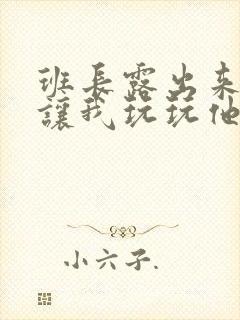 班長露出来
讓我玩玩他
小六子.